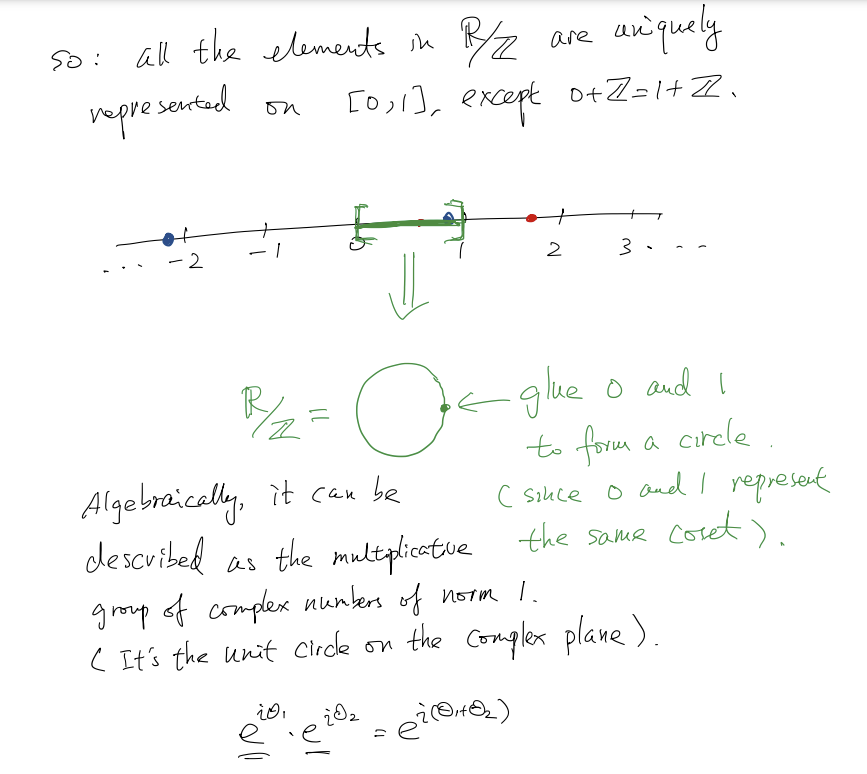 so: all the elements in ℝ/ℤ are uniquely
represented on [0,1], except 0+ℤ=1+ℤ.
... -2 -1 0 1 2 3 . . . .
ℝ/ℤ = ← glue 0 and 1
to form a circle.
(since 0 and 1 represent
the same coset).
Algebraically, it can be
described as the multiplicative
group of complex numbers of norm 1.
(It's the unit circle on the complex plane).
e^{iθ₁} · e^{iθ₂} = e^{i(θ₁+θ₂)}